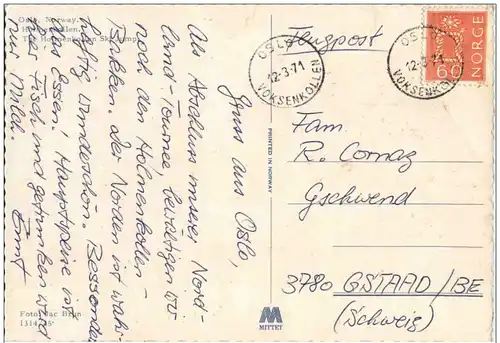 Oslo, Norway.
The Holmenkollen Ski Jump.
Gruss aus Oslo,
Als Abschluss unserer Nord-
land-Tournee, besichtigen wir
noch den Holmenkollen-
Bakken. Der Norden ist wahr-
haftig wunderschön. Besonders
das Essen! Hauptspeise ist
immer Fisch und getrunken wird
nur Milch.
Ernst
Foto: Jac Brun
PRINTED IN NORWAY
MITTET
Flugpost
OSLO
12-3-71
VOKSENKOLLEN
OSLO
12-3-71
VOKSENKOLLEN
60
NORGE
Fam.
R. Cornaz
Gschwend
3780 GSTAAD/BE
(Schweiz)